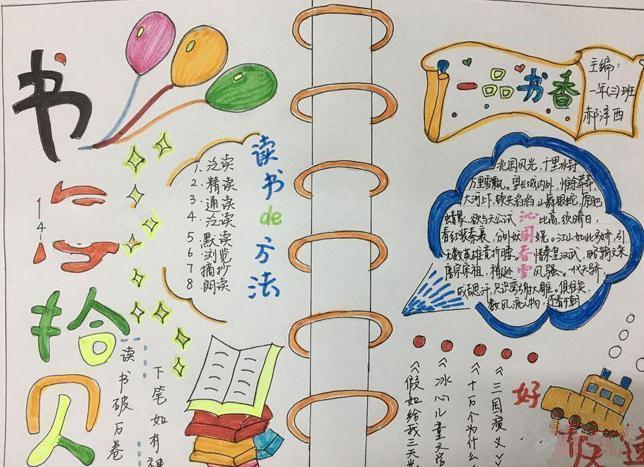 书
拾
贝
读书de方法
1、泛读
2、精读
3、通读
4、泛读
5 默读
6 浏览
7 摘抄
8 朗读
读书破万卷
下笔如有
一品书香
主编:
一年(三)班
郝泽西
沁园春雪
北国风光,千里冰封
万里雪飘。望长城内外,惟余莽莽,
大河上下,顿失滔滔。山舞银蛇,原驰
蜡象,欲与天公试比高。须晴日,
看红装素裹,分外妖娆。江山如此多娇,引
无数英雄竞折腰。惜秦皇汉武,略输文采
唐宗宋祖,稍逊风骚。一代天骄,
成吉思汗,只识弯弓射大雕。俱往矣,
数风流人物,还看今朝
好
《三国演义》
《十万个为什么
《冰心儿童文
《假如给我三天光